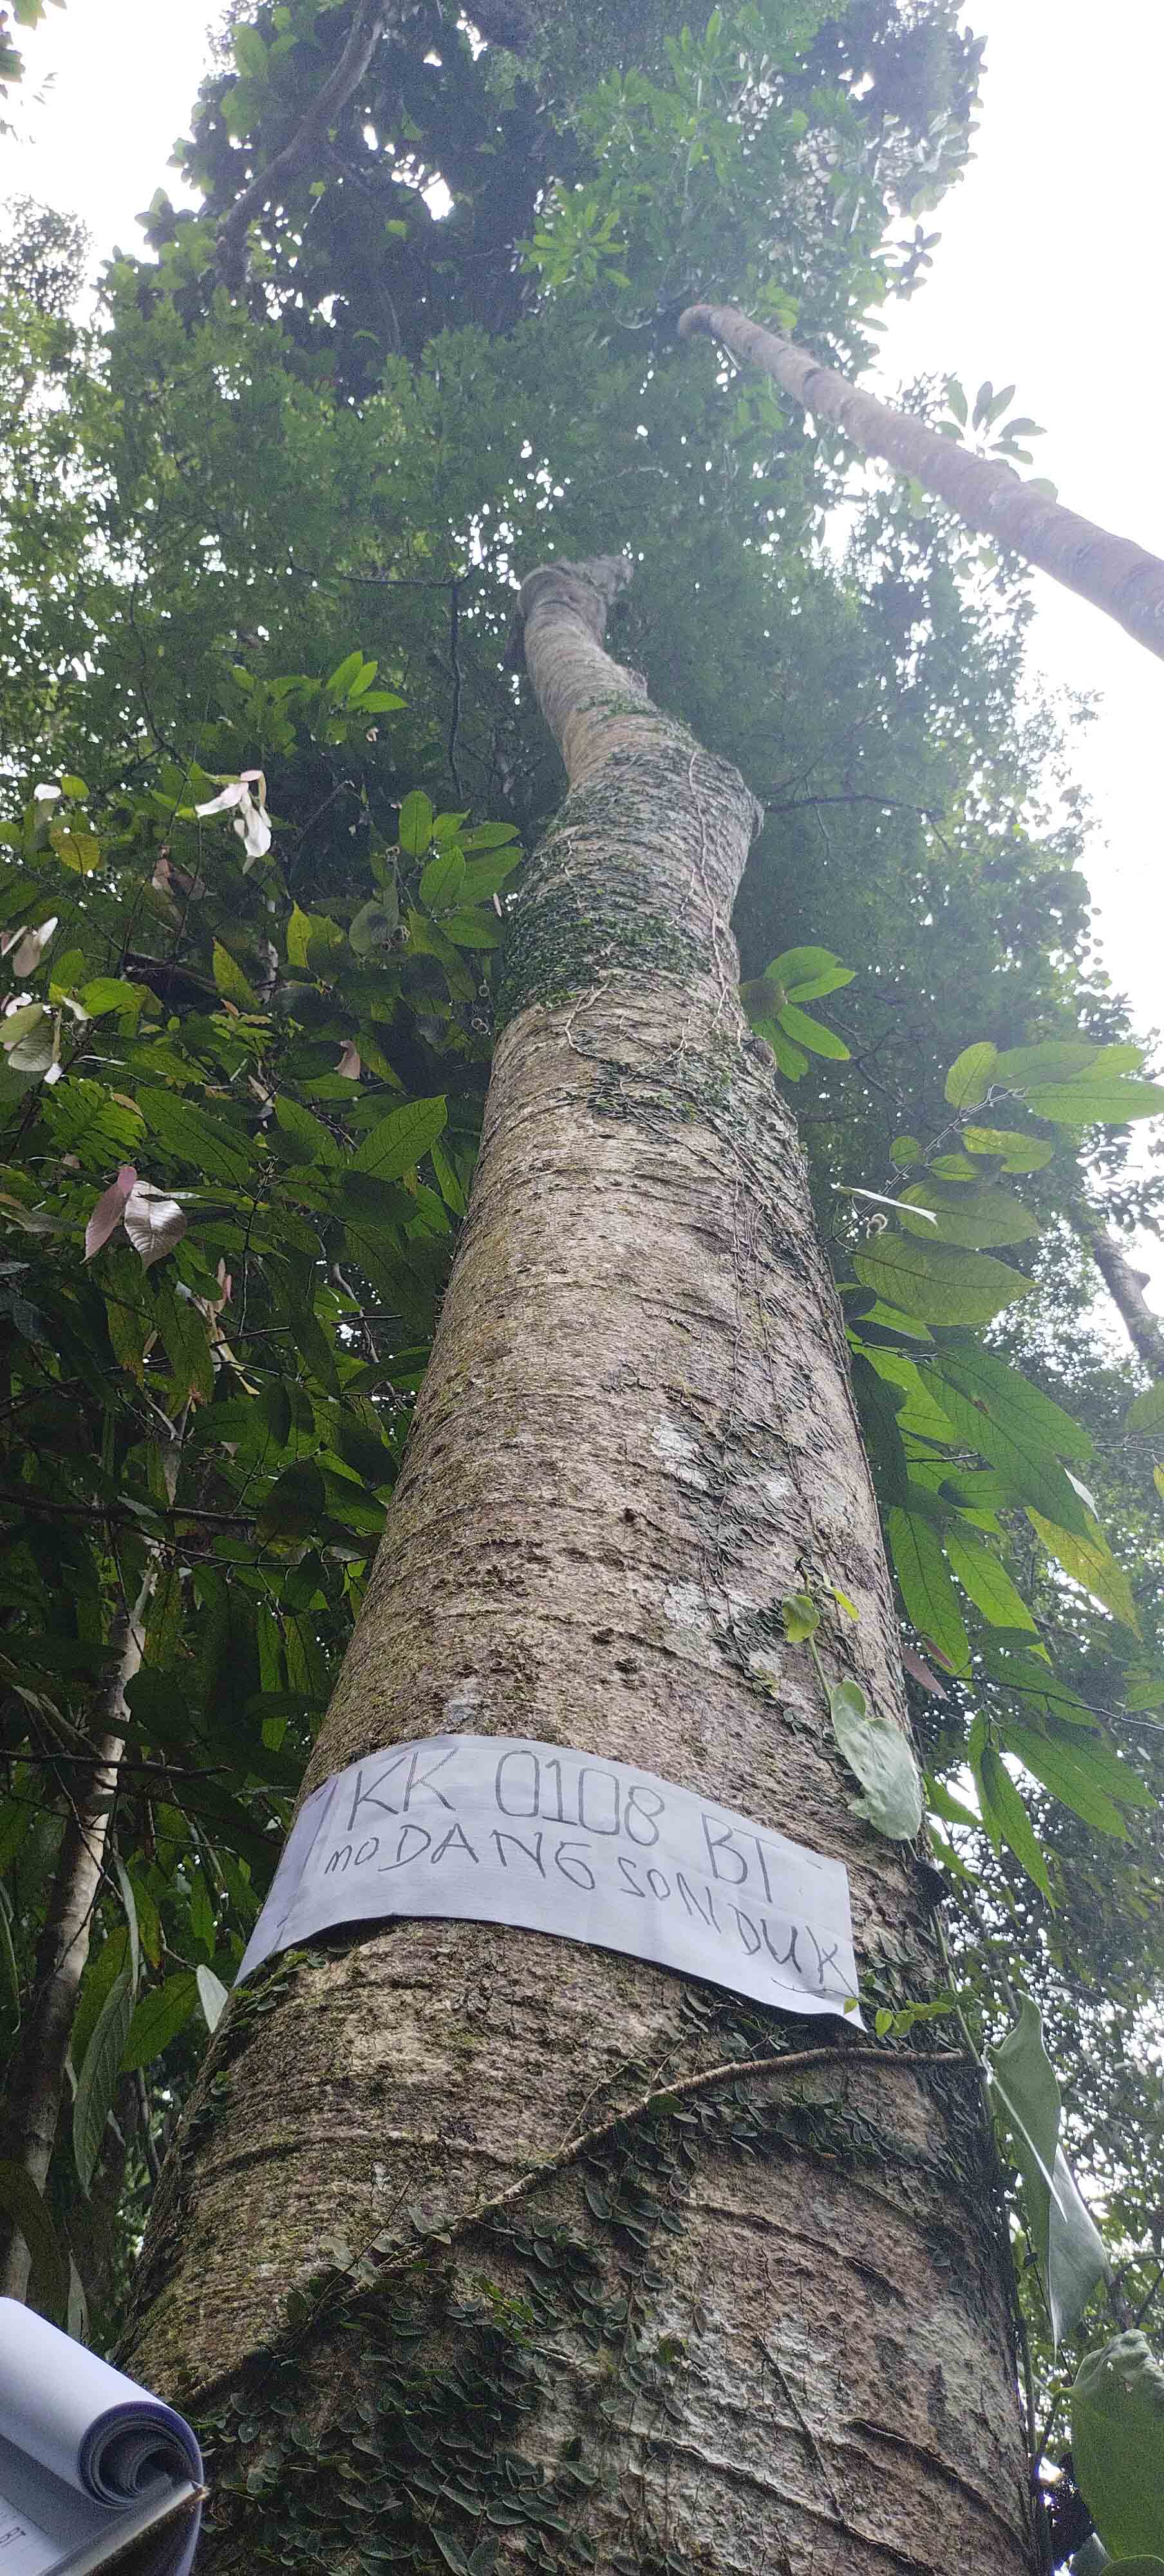 KK 0108 BT
moDANG SONDUK